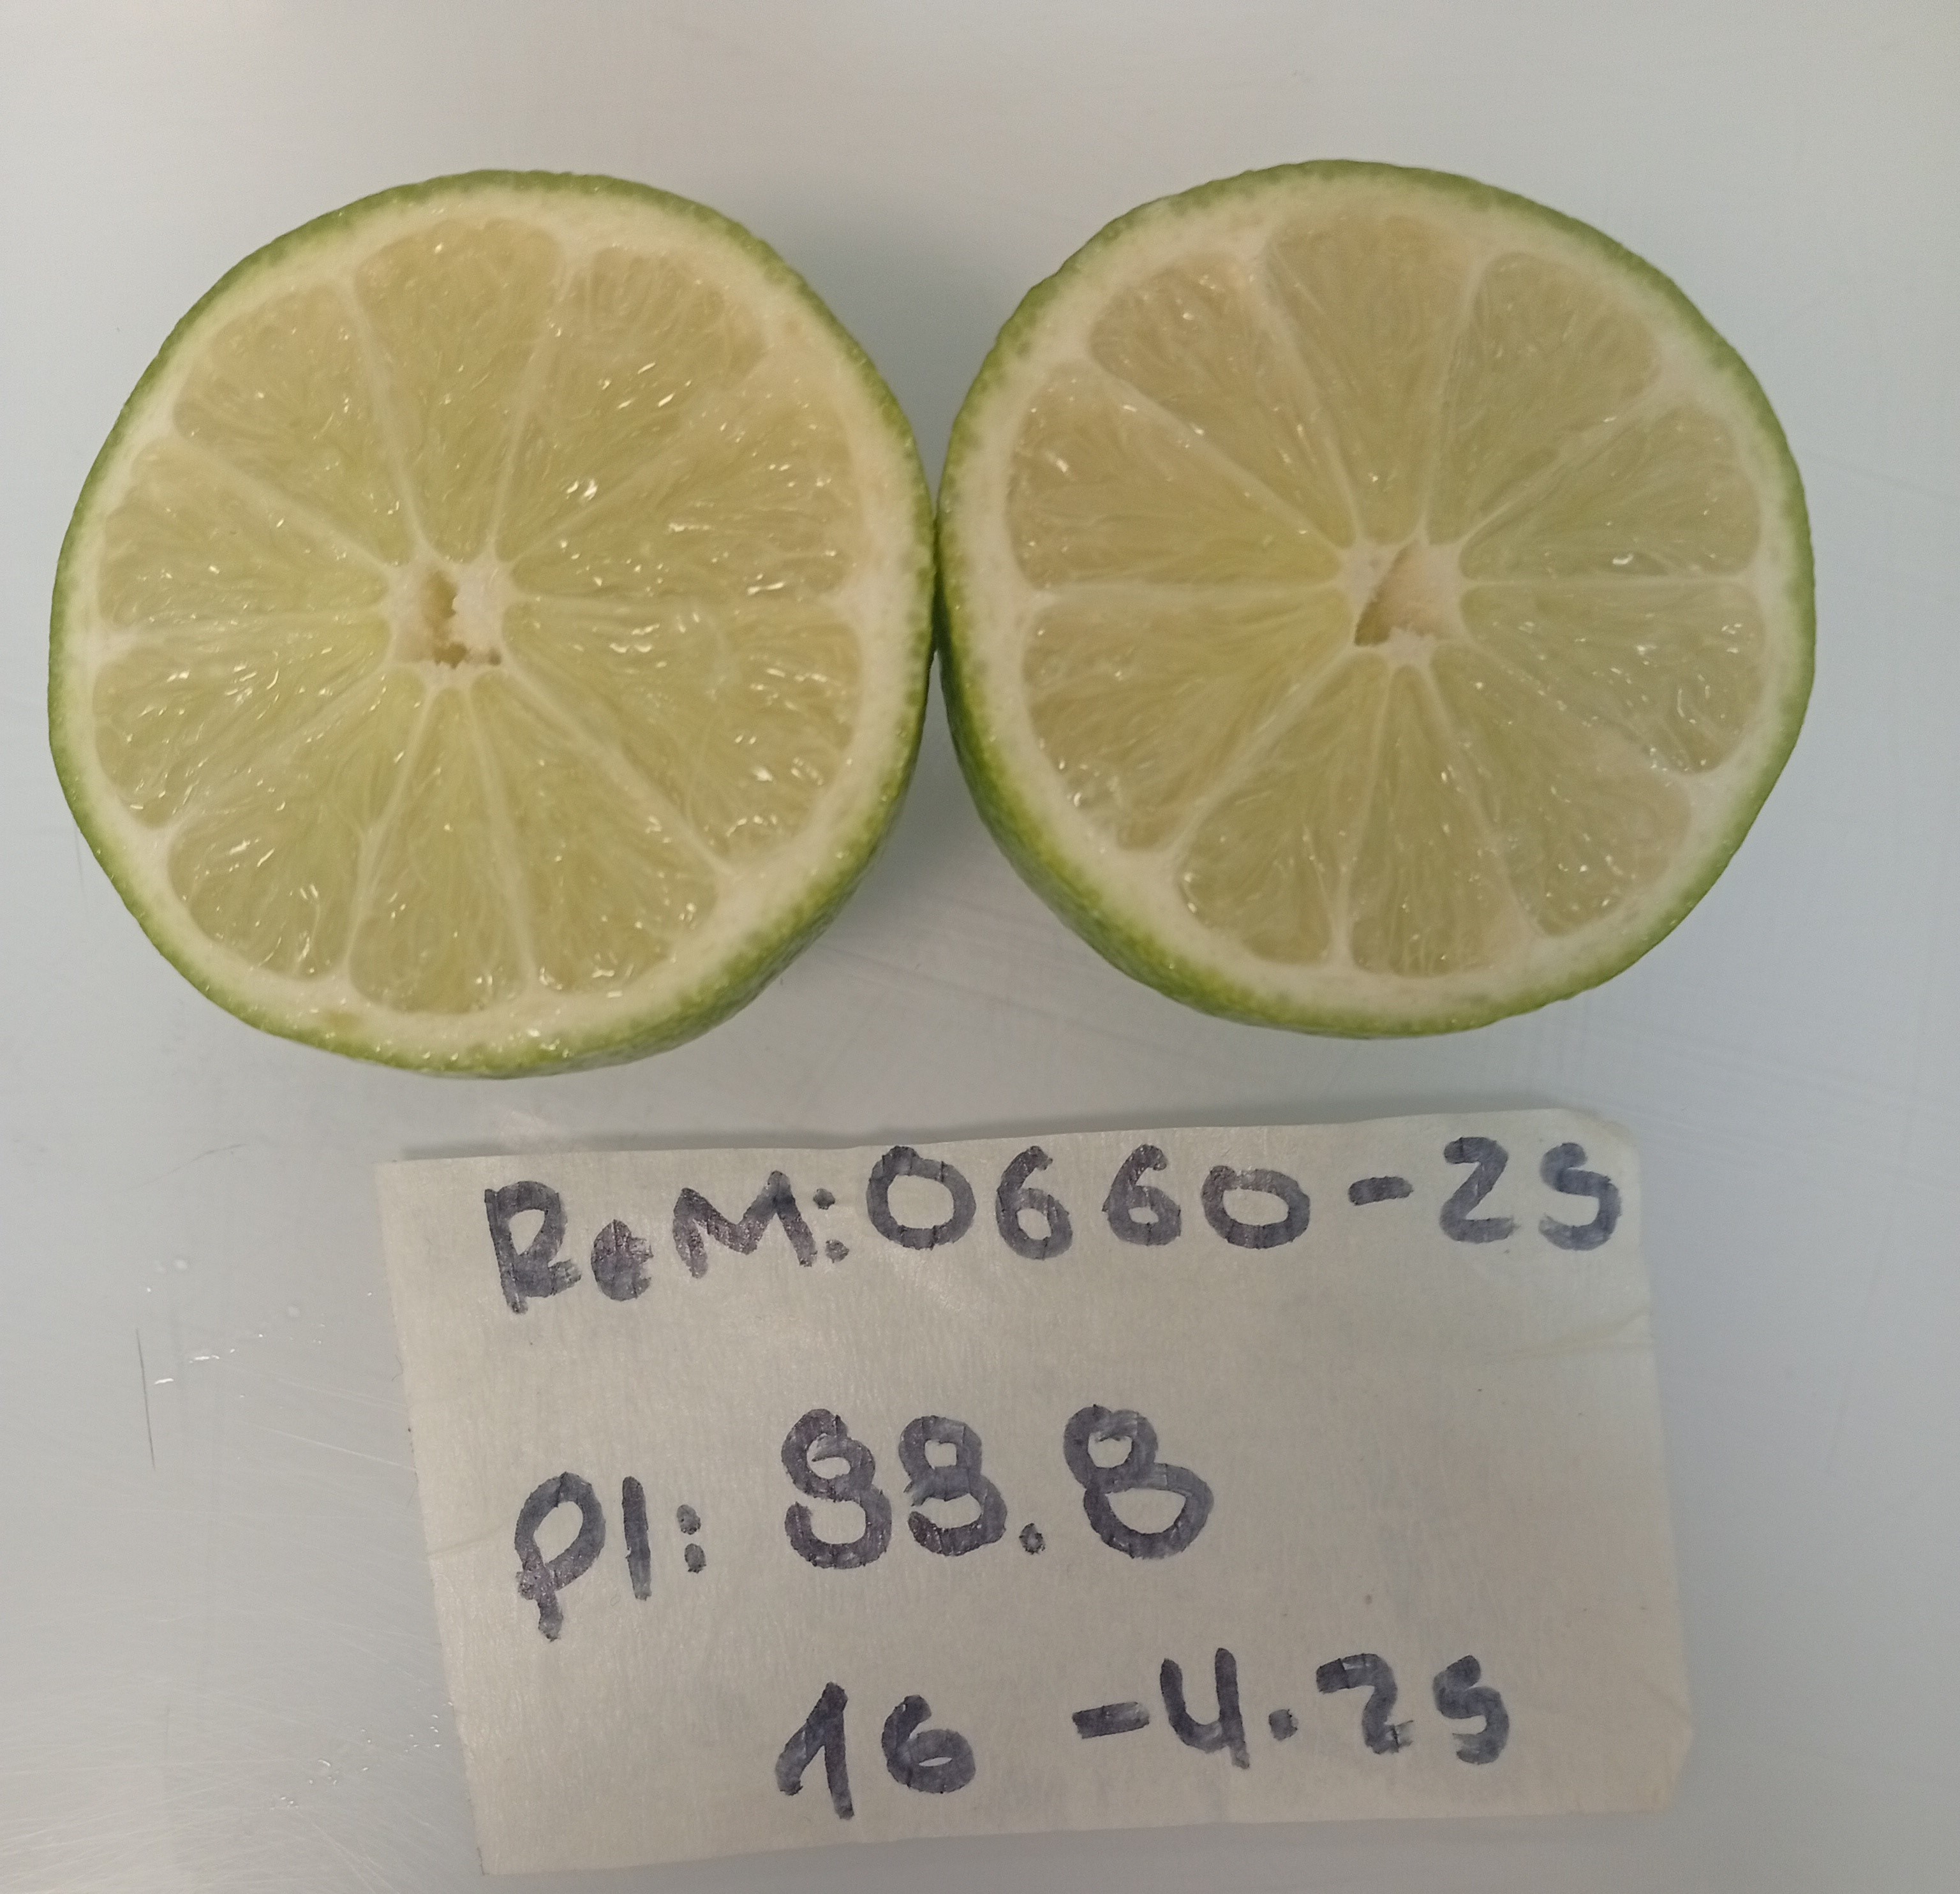 ReM: 0660-25
PI: 88.8
16 -4.25